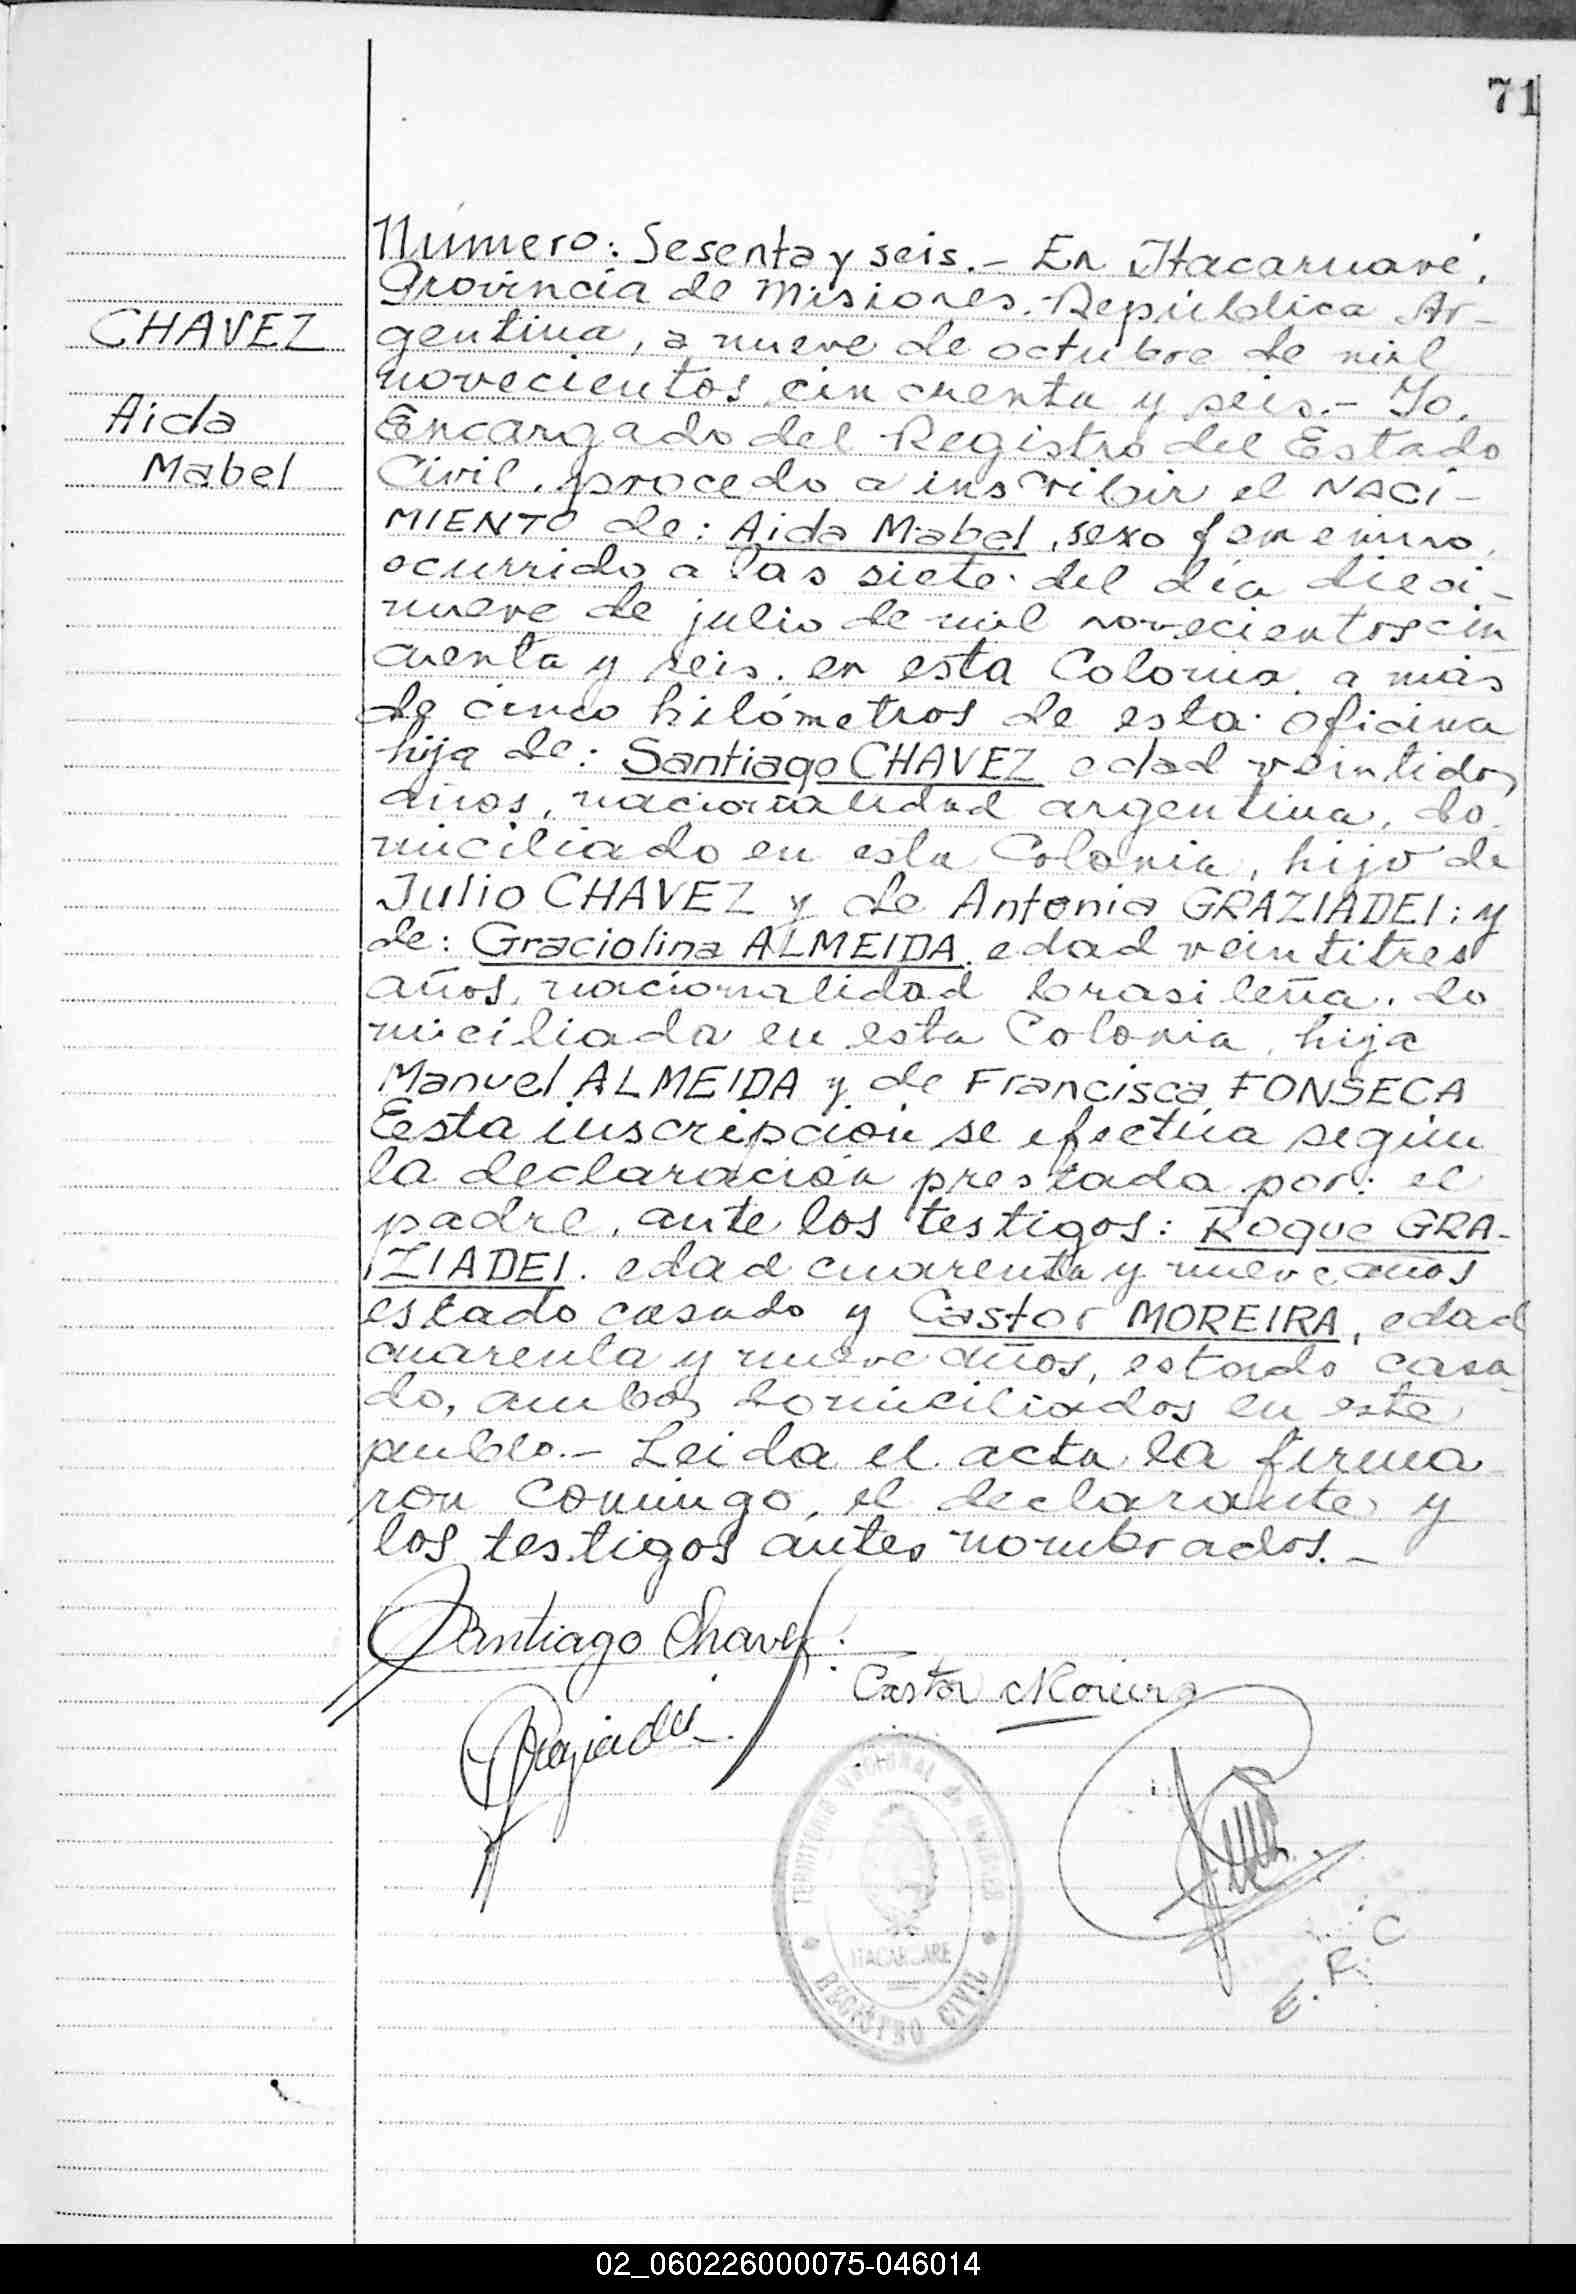 71
Número: Sesenta y seis.- En Itacaruaré,
Provincia de Misiones. República Ar-
CHAVEZ
gentina, a nueve de octubre de mil
novecientos cincuenta y seis.- Yo,
Aida
Encargado del Registro del Estado
Mabel
Civil, procedo a inscribir el NACI-
MIENTO de: Aida Mabel, sexo femenino,
ocurrido a las siete del día dieci-
nueve de julio de mil novecientos cin
cuenta y seis, en esta Colonia, a más
de cinco kilómetros de esta oficina
hija de: Santiago CHAVEZ edad veintidos
años, nacionalidad argentina, do
miciliado en esta Colonia, hijo de
Julio CHAVEZ y de Antonia GRAZIADEI; y
de: Graciolina ALMEIDA, edad veintitres
años, nacionalidad brasileña, do
miciliada en esta Colonia, hija
Manuel ALMEIDA y de Francisca FONSECA
Eesta inscripción se efectúa según
la declaración prestada por: el
padre, ante los testigos: Roque GRA-
ZIADEI. edad cuarenta y nueve años
estado casado y Castor MOREIRA, edad
cuarenta y nueve años, estado casa
do, ambos domiciliados en este
pueblo.- Leida el acta la firma
ron conmigo, el declarante y
los testigos antes nombrados.-
Santiago Chavez
Castor Moreira
TERRITORIO NACIONAL de MISIONES
ITACARUARE
REGISTRO CIVIL
E.R.C
02_060226000075-046014